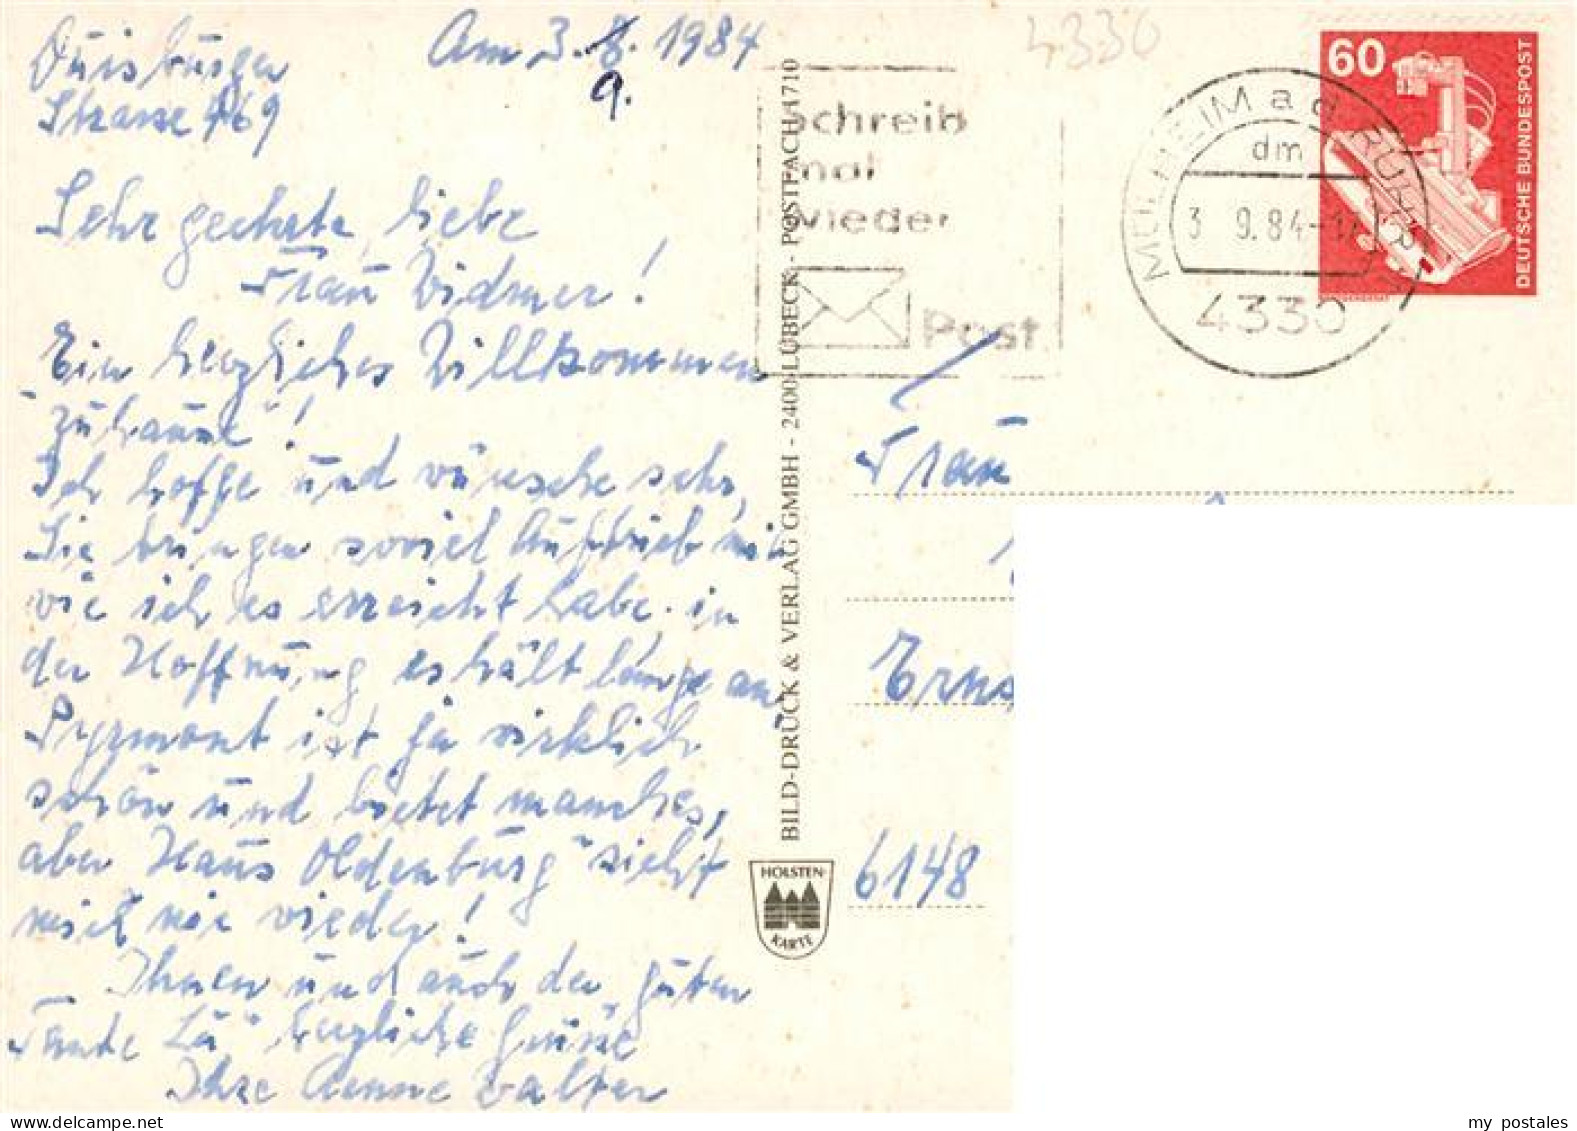 Am 3. 8. 1984
9.
Duisburger
Strasse 469
4330
Sehr geehrte, liebe
Frau Widmer!
Ein herzliches Willkommen
"zuhause"!
Ich hoffe und wünsche sehr,
Sie bringen soviel Auftrieb mit
wie ich es erreicht habe. in
der Hoffnung, es hält lange an,
Pyrmont ist ja wirklich
schön und bietet manches,
aber "Haus Oldenburg" sieht
mich nie wieder!
Ihnen und auch der "guten
Tante Lä" herzliche Grüsse
Ihre Aenne Walter
Schreib
mal
wieder
Post
MÜLHEIM a d RUHR 1
dm
3. 9. 84-17
4330
60
DEUTSCHE BUNDESPOST
BILD-DRUCK & VERLAG GMBH - 2400 LÜBECK - POSTFACH 1710
HOLSTEN-
KARTE
Frau
6148
my postales